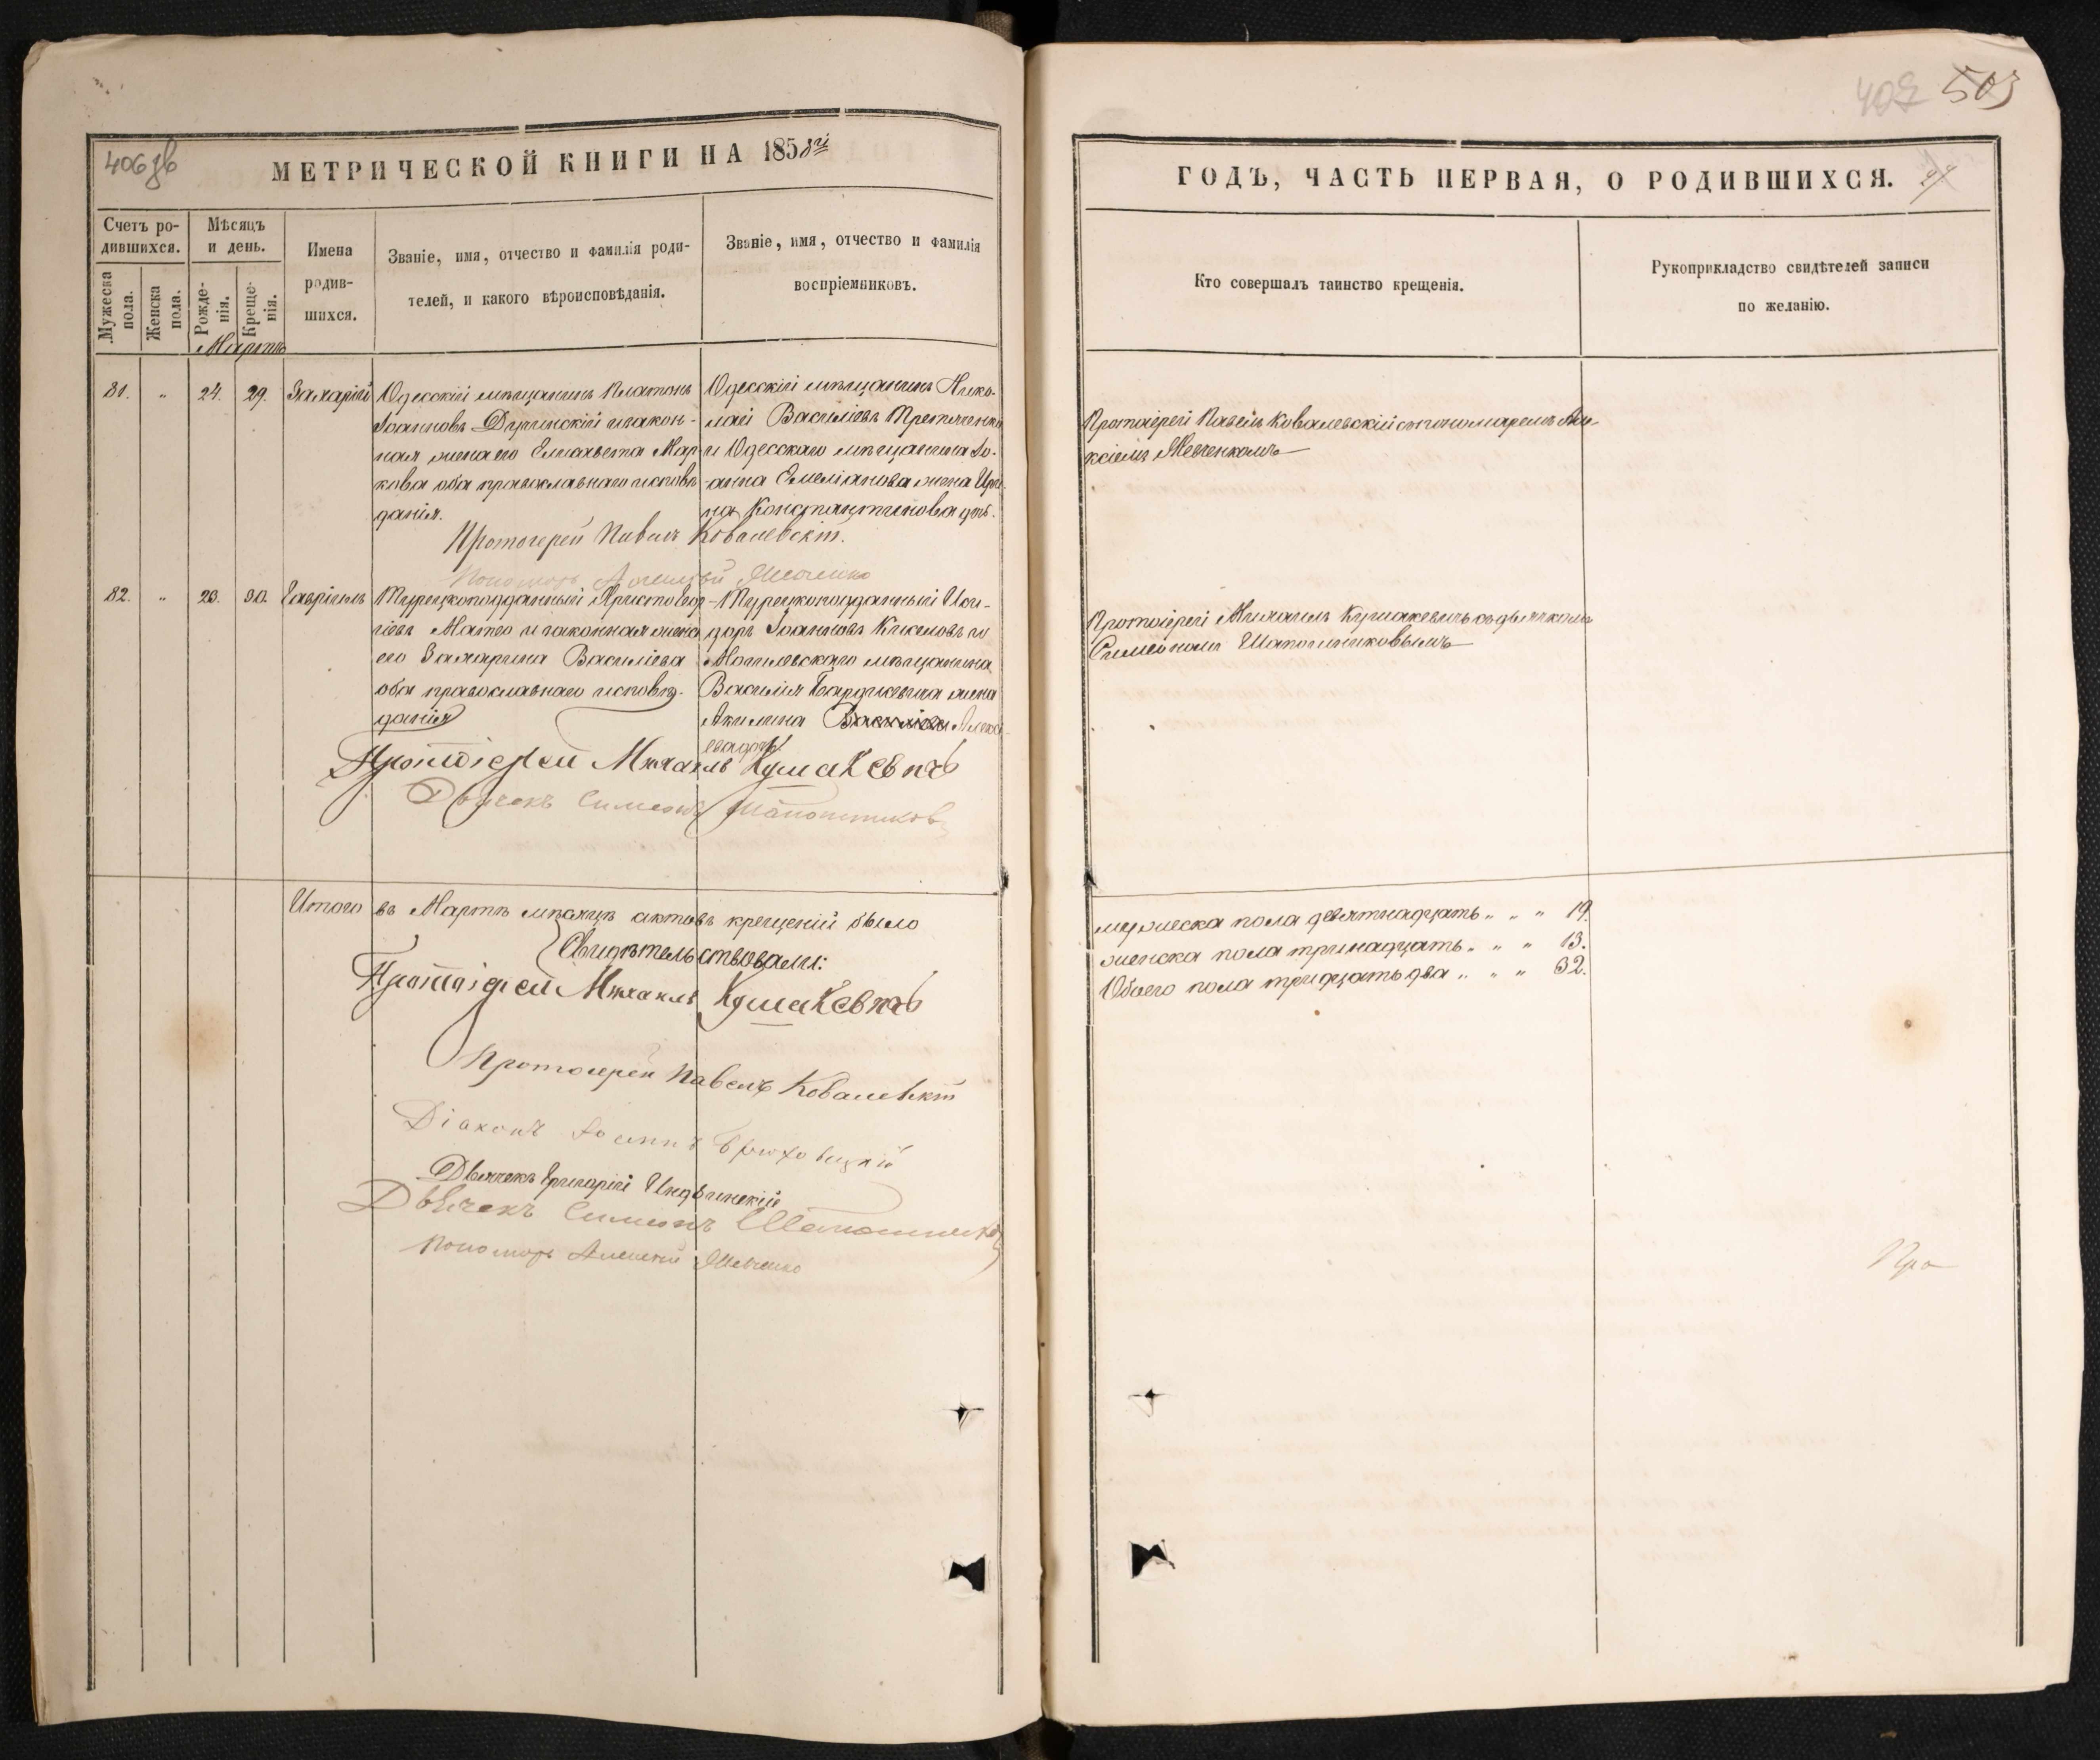 406 об
МЕТРИЧЕСКОЙ КНИГИ НА 1858й
Счетъ ро-
дившихся.
Мѣсяцъ
и день.
Мужеска
пола.
Женска
пола.
Рожде-
нія.
Креще-
нія.
Имена
родив-
шихся.
Званіе, имя, отчество и фамилія роди-
телей, и какого вѣроисповѣданія.
Званіе, имя, отчество и фамилія
воспріемниковъ.
Мартъ
81. " 24. 29. Захарій
Одесскій мѣщанинъ Платонъ
Іоанновъ закон-
ная жена его Елисавета Мар-
кова оба православнаго исповѣ
данія.
Одесскій мѣщанинъ Нико-
лай Василіевъ
и Одесскаго мѣщанина Іо-
анна Емеліанова жена Ири-
на Константинова дчь.
Протоіерей Павелъ Ковалевскій.
Пономарь Алексѣй
82. " 23. 30. Гавріилъ
Турецкоподданный Христо Геор-
гіевъ Матео и законная жена
его Замарина Василіева
оба православнаго исповѣ-
данія
Турецкоподданный Иси-
доръ Іоанновъ Киселовъ и
Могилевскаго мѣщанина
Василія жена
Акилина Василіева Алексѣ-
ева дчь.
Протоіерей Михаилъ Кушакевичъ
Дьячекъ Симеонъ Шапошниковъ
Итого въ Мартѣ мѣсяцѣ актовъ крещеній было
Свидѣтельствовали:
Протоіерей Михаилъ Кушакевичъ
Протоіерей Павелъ Ковалевскій
Діаконъ Іоаннъ Брюховецкій
Дьячекъ Григорій
Дьячекъ Симеонъ Шапошниковъ
Пономарь Алексѣй
407 503
ГОДЪ, ЧАСТЬ ПЕРВАЯ, О РОДИВШИХСЯ.
Кто совершалъ таинство крещенія.
Рукоприкладство свидѣтелей записи
по желанію.
Протоіерей Павелъ Ковалевскій съ пономаремъ Але-
ксіемъ
Протоіерей Михаилъ Кушакевичъ съ дьячкомъ
Симеономъ Шапошниковымъ
мужеска пола девятнадцать " " " 19.
женска пола тринадцать " " " 13.
Обоего пола тридцать два " " " 32.
Про